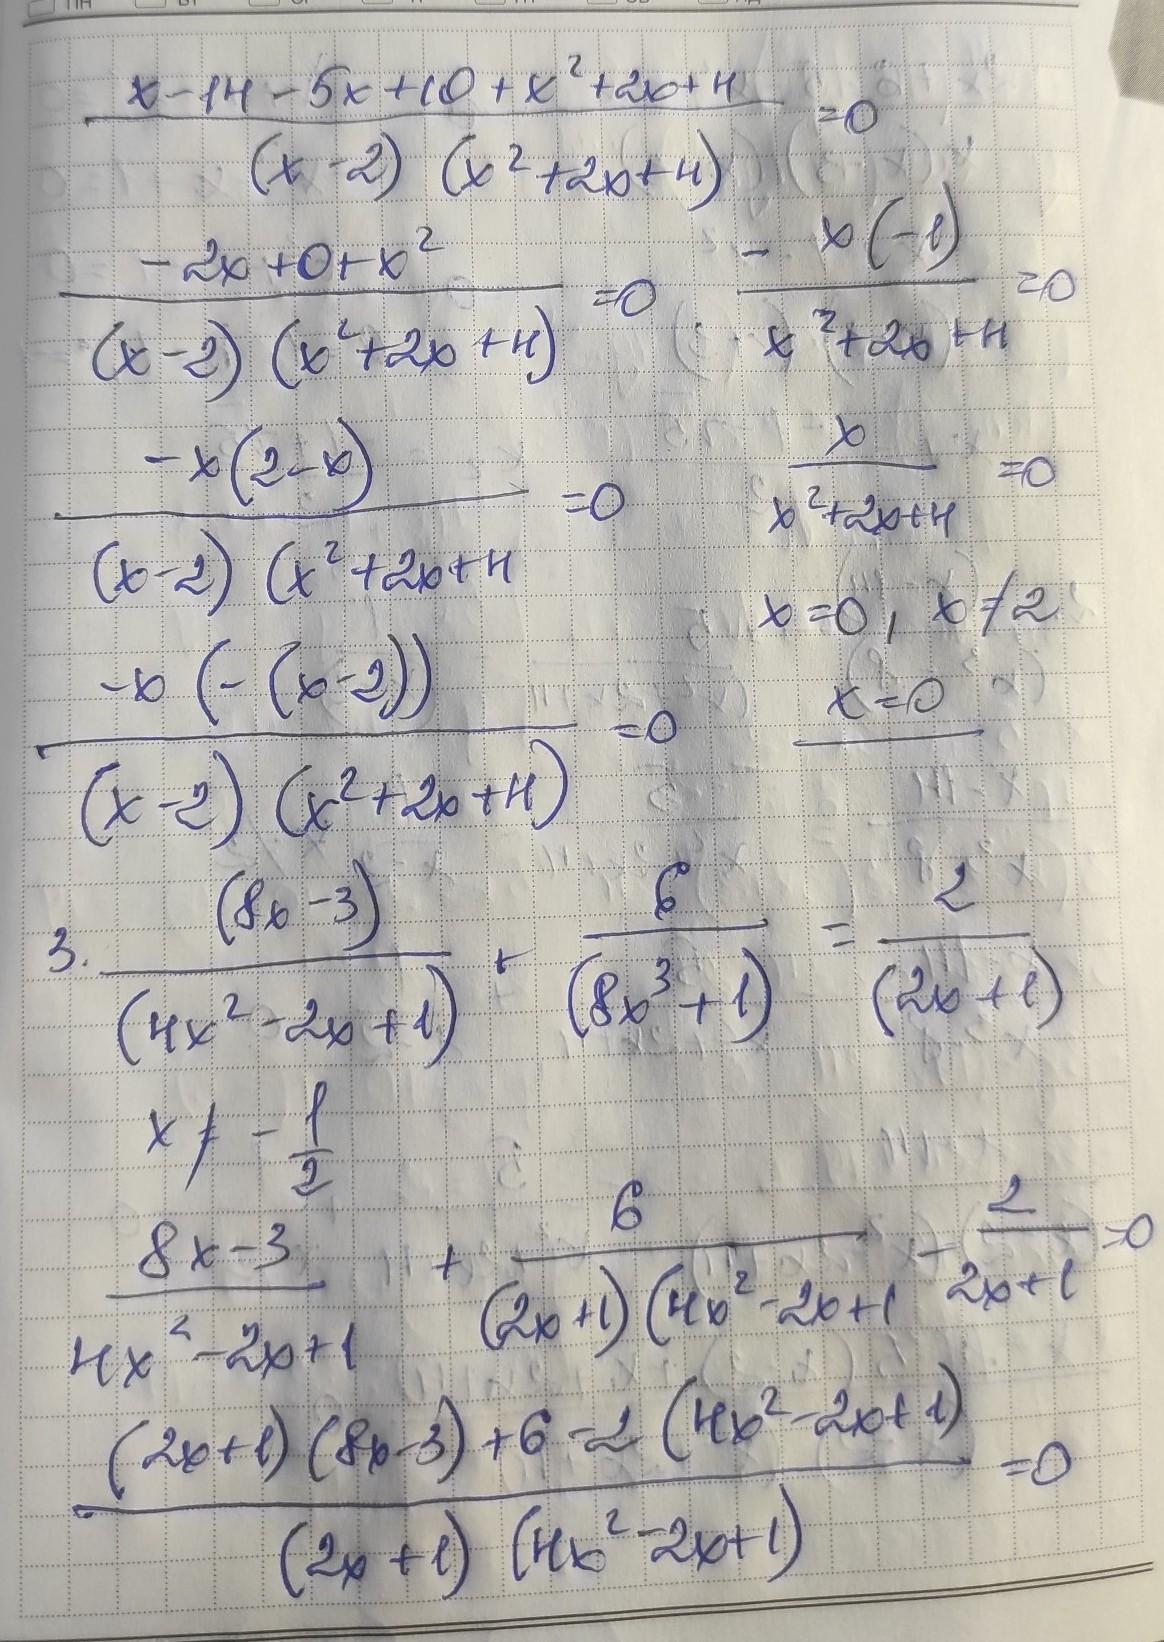 x-14-5x+10+x²+2x+4 / (x-2) (x²+2x+4) =0
-2x+0+x² / (x-2) (x²+2x+4) =0
-x(2-x) / (x-2) (x²+2x+4 =0
-x (-(x-2)) / (x-2) (x²+2x+4) =0
- x(-1) / x²+2x+4 =0
x / x²+2x+4 =0
x=0, x≠2
x=0
3. (8x-3) / (4x²-2x+1) + 6 / (8x³+1) = 2 / (2x+1)
x ≠ - 1/2
8x-3 / 4x²-2x+1 + 6 / (2x+1) (4x²-2x+1 - 2 / 2x+1 =0
(2x+1) (8x-3) +6-2 (4x²-2x+1) / (2x+1) (4x²-2x+1) =0